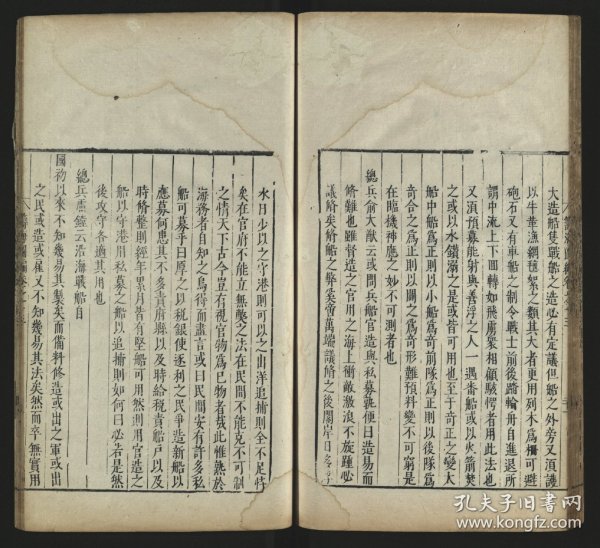 大造船隻戰船之造必有定議但船之外旁又須護
以牛革漁網懸絮之類其大者更用列木為柵可避
砲石又有車船之制令戰士前後踏輪舟自進退所
謂中流上下迴轉如飛虜眾相顧駭愕者用此法也
又須預募能射與善浮之人一遇番船或以火箭焚
之或以水鑽溺之是或皆可用也至于奇正之變大
船中船為正則以小船為奇前隊為正則以後隊為
奇合之為正則以闘之為奇形難預料變不可窮是
在臨機神應之妙不可測者也
總兵俞大猷云或問兵船官造與私募孰便曰造易而
脩難也雖督造之官用之海上衝敵激浪不旋踵必
議脩矣脩船之弊奚啻萬端議脩之後閣岸日多
水日少以之守港則可以之出洋追捕則全不足恃
矣在官府不能立無弊之法在民間不能克不可制
之情天下古今豈有視官物為己物者哉此惟熟於
海務者自知之為得而盡言或曰民間安有許多私
船可募乎曰厚之以稅銀使逐利之民爭造新船以
應募何患其不多責府縣以及時給稅責船戶以及
時脩整則經年累月皆有堅船可用然則用官造之
船以守港用私募之船以追捕則如何曰必若是然
後攻守各適其用也
總兵盧鏜云沿海戰船自
國初以來不知幾易其製矣而備料修造或出之軍或出
之民或造或雇又不知幾易其法矣然而卒無實用
孔夫子旧书网
www.kongfz.com